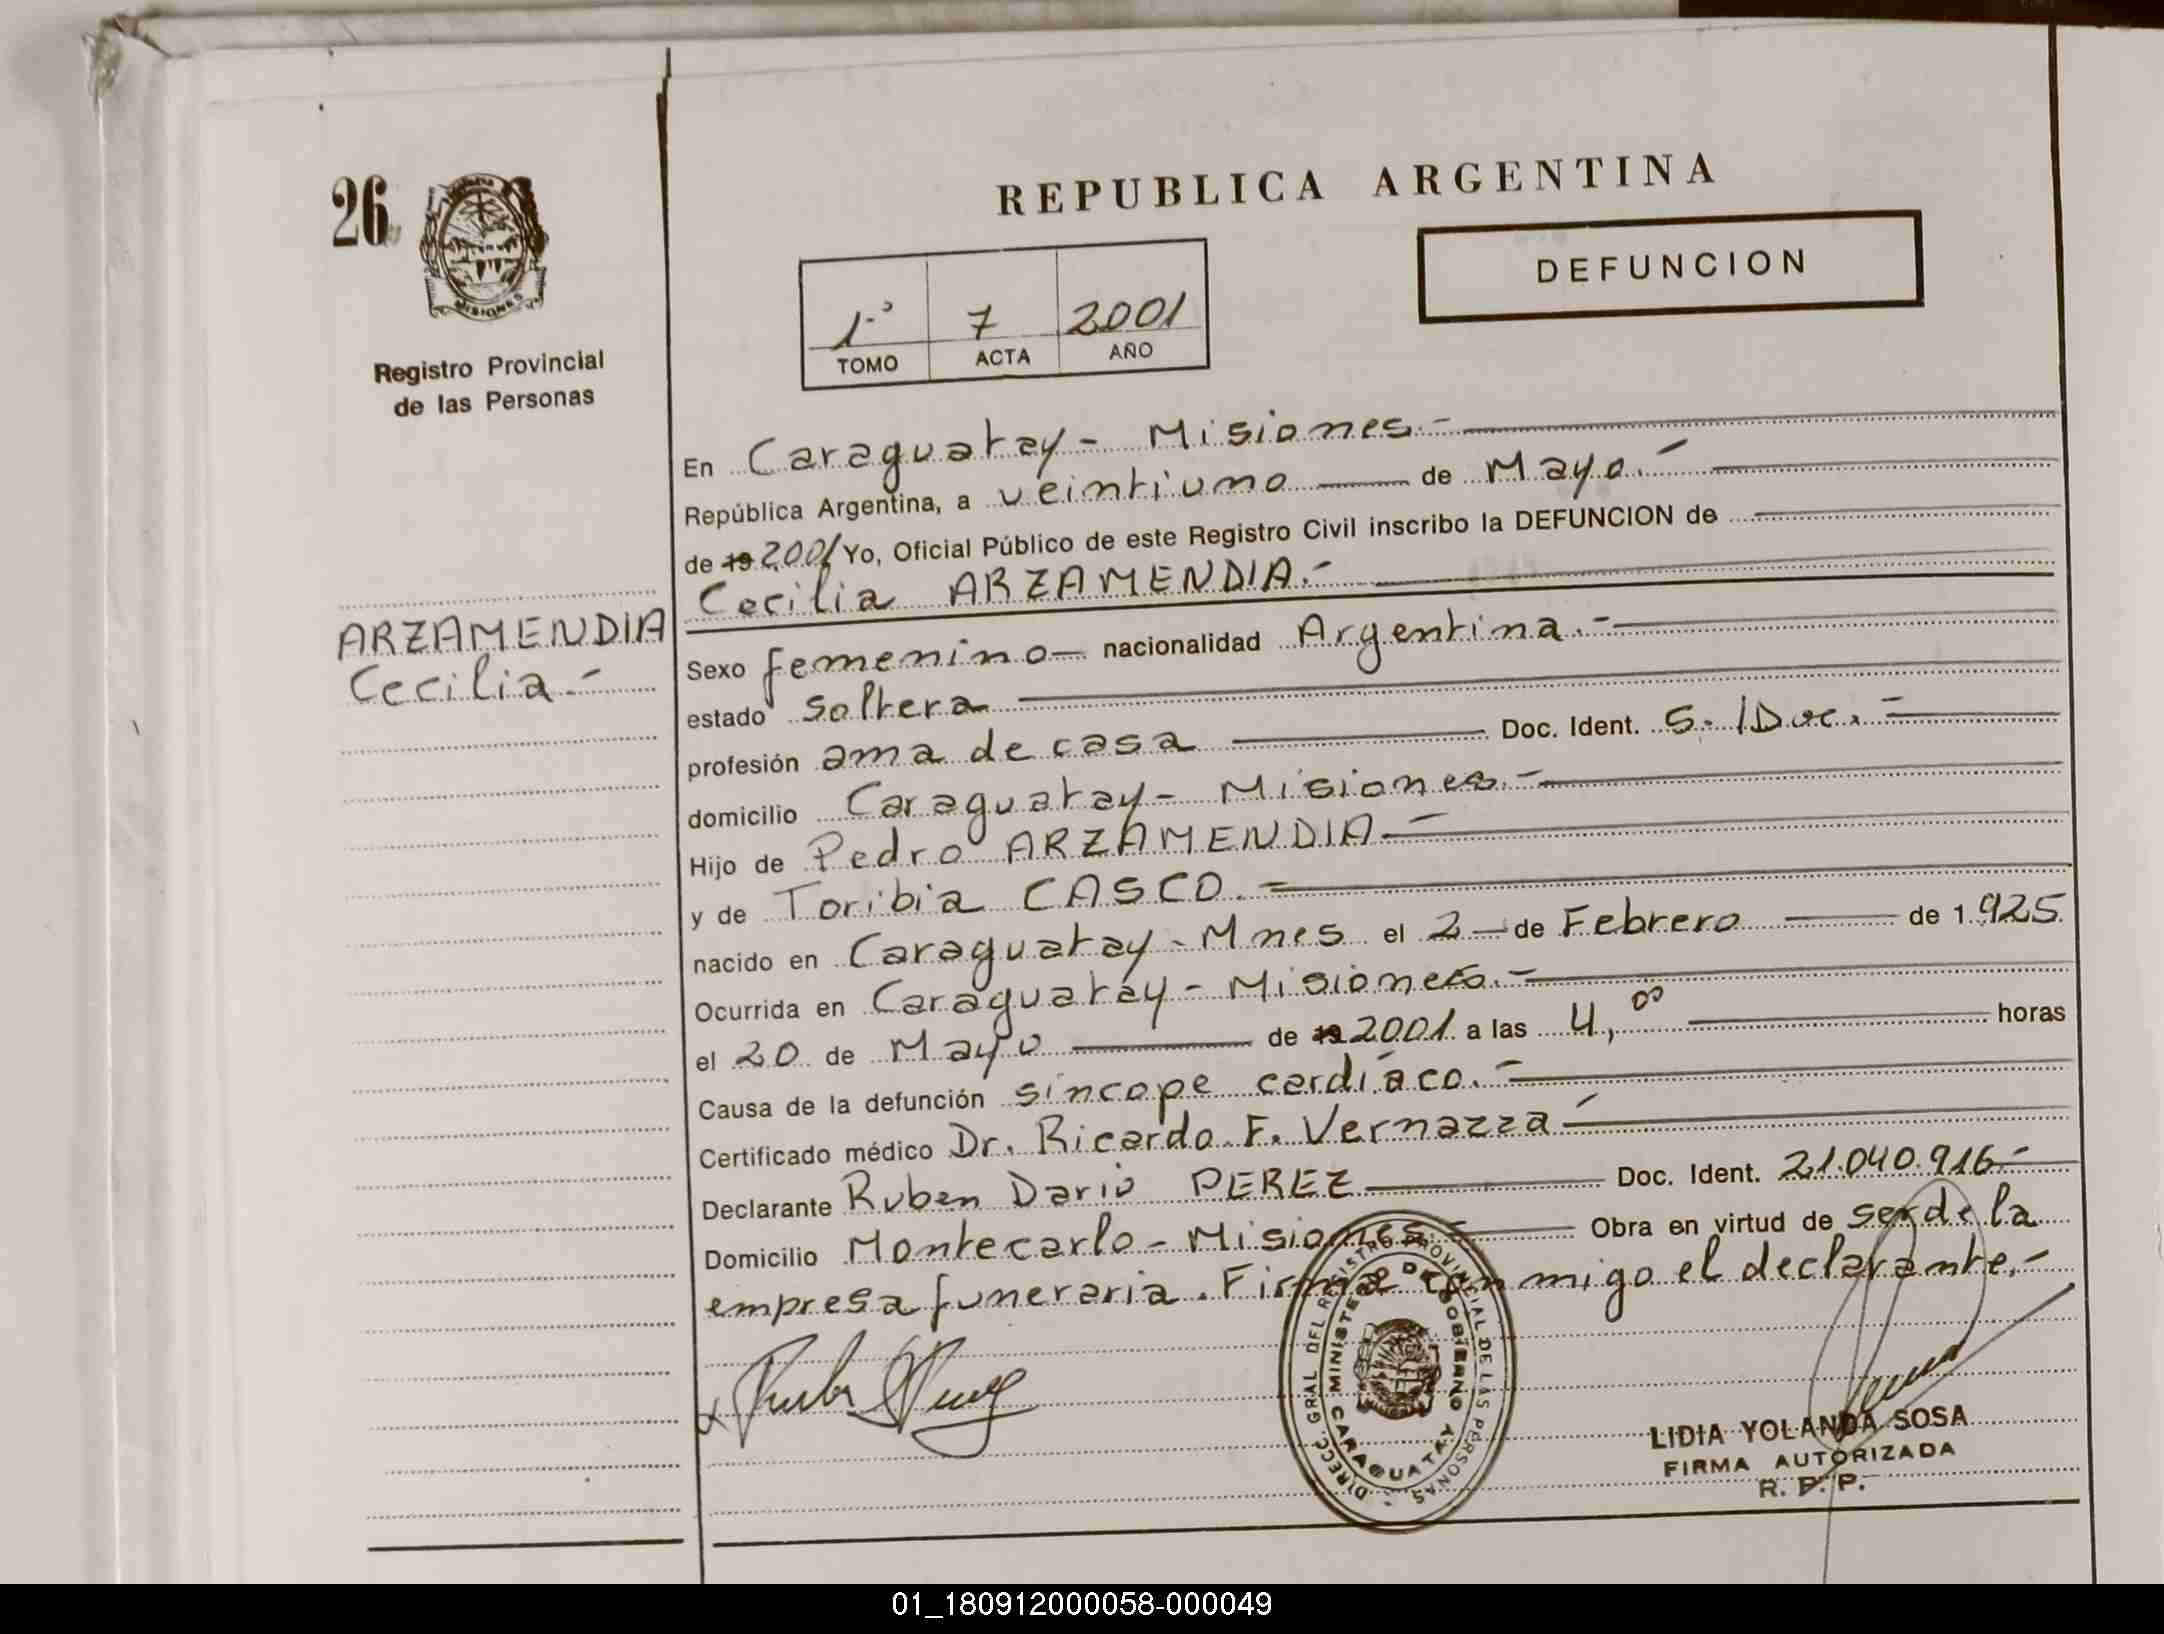 26
MISIONES
Registro Provincial
de las Personas
ARZAMENDIA
Cecilia.-
REPUBLICA ARGENTINA
DEFUNCION
1-º 7 2001
TOMO ACTA AÑO
En Caraguatay- Misiones.-
República Argentina, a veintiuno de Mayo.-
de 19 2001 Yo, Oficial Público de este Registro Civil inscribo la DEFUNCION de
Cecilia ARZAMENDIA.-
Sexo femenino- nacionalidad Argentina.-
estado soltera
profesión ama de casa Doc. Ident. S.IDoc.-
domicilio Caraguatay- Misiones.-
Hijo de Pedro ARZAMENDIA-
y de Toribia CASCO.-
nacido en Caraguatay-Mnes el 2- de Febrero de 1.925
Ocurrida en Caraguatay- Misiones.-
el 20 de Mayo de 19 2001 a las 4,00 horas
Causa de la defunción síncope cardíaco.-
Certificado médico Dr. Ricardo F. Vernazza-
Declarante Ruben Dario PEREZ Doc. Ident. 21.040.916-
Domicilio Montecarlo- Misiones- Obra en virtud de ser de la
empresa funeraria. Firma conmigo el declarante.-
DIRECC. GRAL. DEL REGISTRO PROVINCIAL DE LAS PERSONAS -
MINISTERIO DE GOBIERNO
CARAGUATAY
LIDIA YOLANDA SOSA
FIRMA AUTORIZADA
R. P. P.
01_180912000058-000049